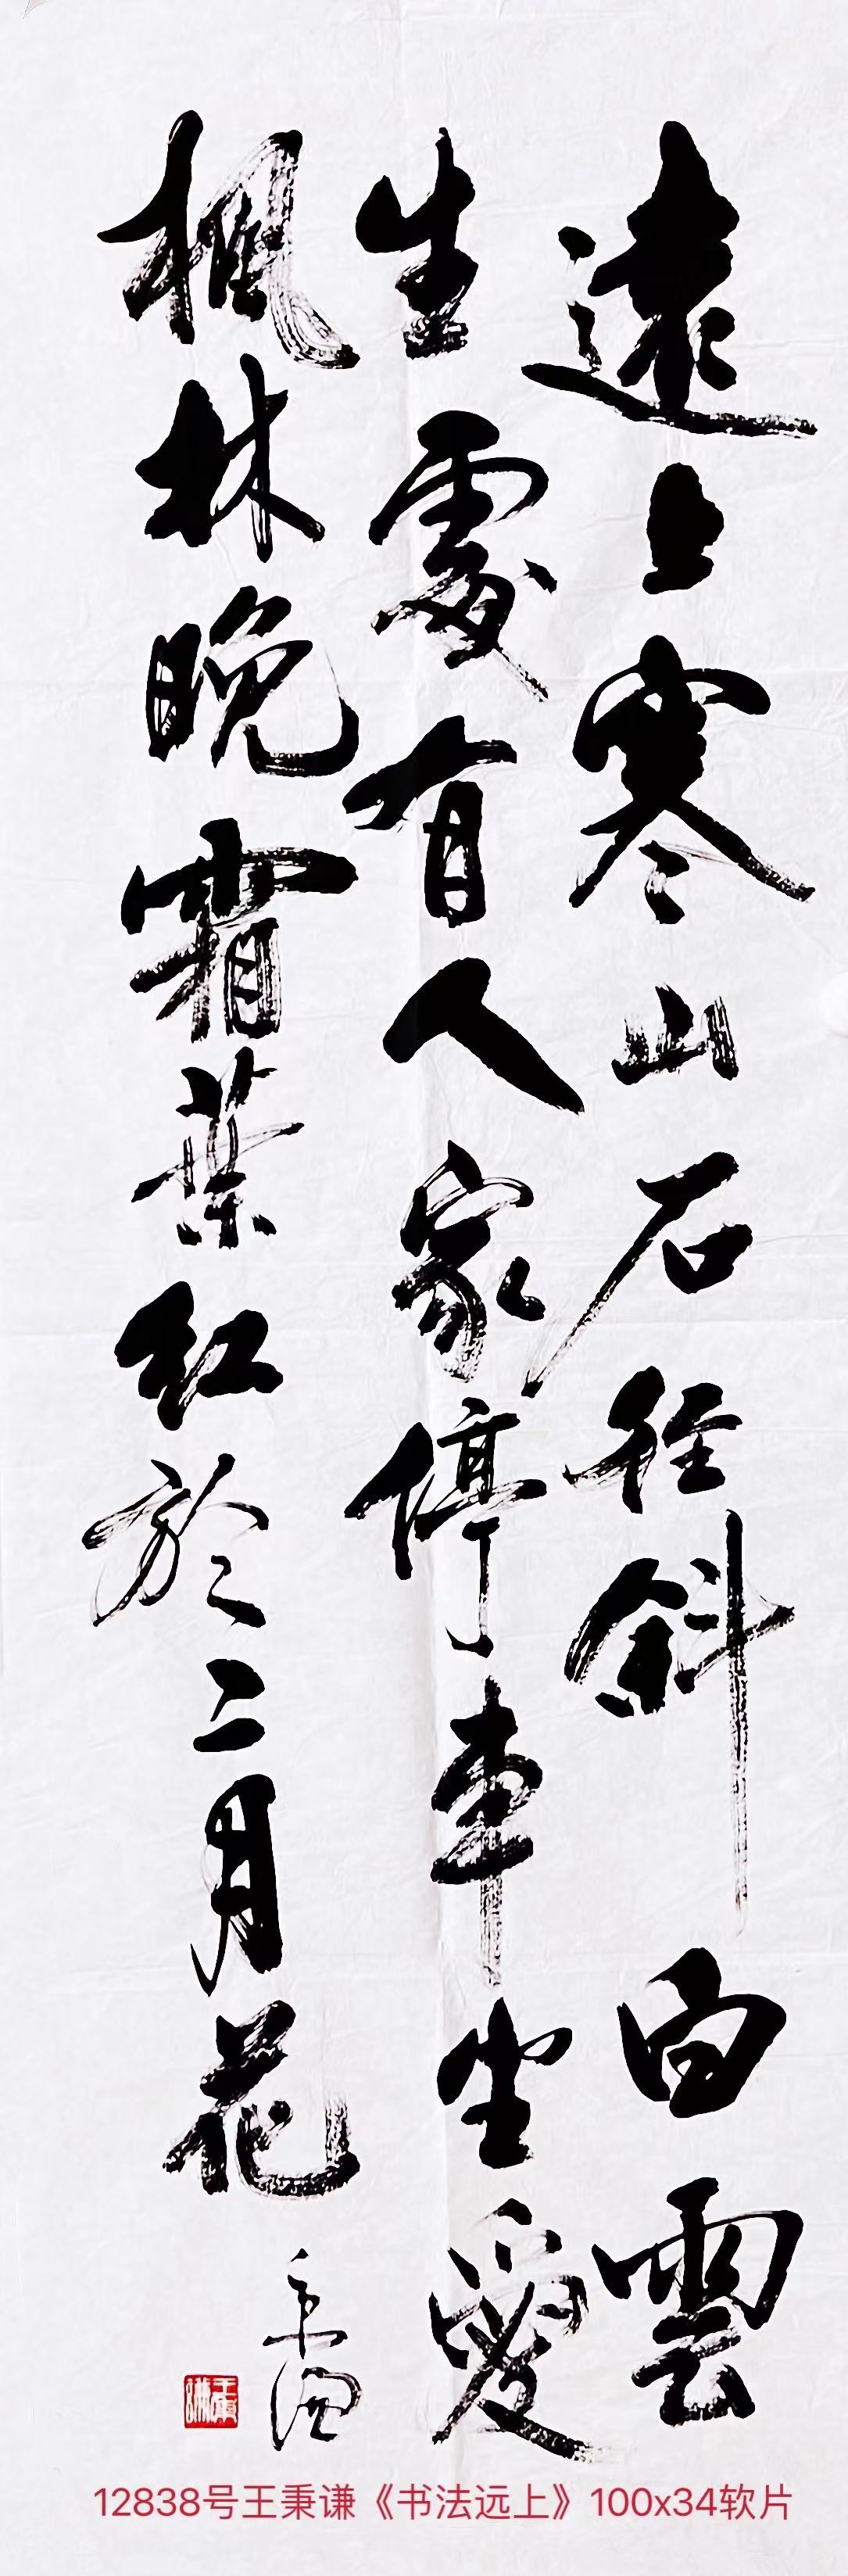 遠上寒山石径斜白雲
生處有人家停車坐愛
楓林晚霜葉红於二月花
秉谦
12838号王秉谦《书法远上》100x34软片